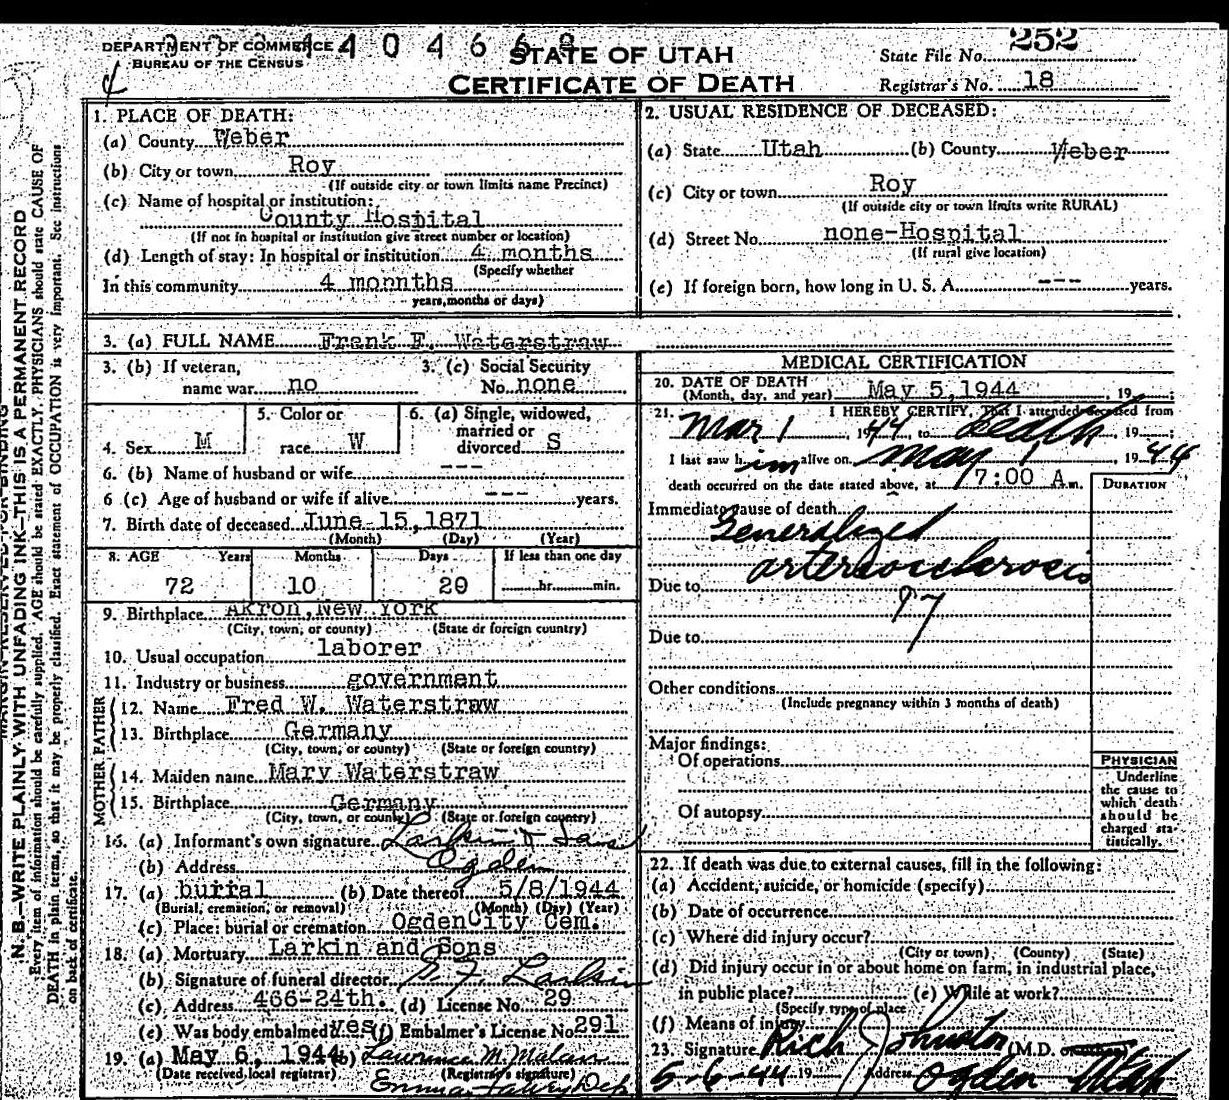 DEPARTMENT OF COMMERCE
BUREAU OF THE CENSUS
4 0 4 6 6
STATE OF UTAH
CERTIFICATE OF DEATH
State File No. 252
Registrar's No. 18
N. B.—WRITE PLAINLY WITH UNFADING INK—THIS IS A PERMANENT RECORD
Every item of information should be carefully supplied. AGE should be stated EXACTLY. PHYSICIANS should state CAUSE OF
DEATH in plain terms, so that it may be properly classified. Exact statement of OCCUPATION is very important. See instructions
on back of certificate.
1. PLACE OF DEATH:
(a) County Weber
(b) City or town Roy
(If outside city or town limits name Precinct)
(c) Name of hospital or institution:
County Hospital
(If not in hospital or institution give street number or location)
(d) Length of stay: In hospital or institution 4 months
(Specify whether
In this community 4 monnths
years, months or days)
2. USUAL RESIDENCE OF DECEASED:
(a) State Utah (b) County Weber
(c) City or town Roy
(If outside city or town limits write RURAL)
(d) Street No. none-Hospital
(If rural give location)
(e) If foreign born, how long in U. S. A. --- years.
3. (a) FULL NAME Frank F. Waterstraw
3. (b) If veteran, name war no
3. (c) Social Security No. none
4. Sex M
5. Color or race W
6. (a) Single, widowed, married or divorced S
6. (b) Name of husband or wife ---
6 (c) Age of husband or wife if alive --- years.
7. Birth date of deceased June-15,1871
(Month) (Day) (Year)
8. AGE Years Months Days If less than one day
72 10 20 hr. min.
9. Birthplace Akron,New York
(City, town, or county) (State or foreign country)
10. Usual occupation laborer
11. Industry or business government
FATHER
12. Name Fred W. Waterstraw
13. Birthplace Germany
(City, town, or county) (State or foreign country)
MOTHER
14. Maiden name Mary Waterstraw
15. Birthplace Germany
(City, town, or county) (State or foreign country)
16. (a) Informant's own signature Larkin & Sons
(b) Address Ogden
17. (a) burial (b) Date thereof 5/8/1944
(Burial, cremation, or removal) (Month) (Day) (Year)
(c) Place: burial or cremation OgdenCity Cem.
18. (a) Mortuary Larkin and Sons
(b) Signature of funeral director Larkin
(c) Address 466-24th. (d) License No. 29
(e) Was body embalmed? yes (f) Embalmer's License No. 291
19. (a) May 6, 1944 (b) Lawrence M. Malan
(Date received local registrar) (Registrar's signature)
Emma Dep
MEDICAL CERTIFICATION
20. DATE OF DEATH
(Month, day, and year) May 5,1944, 19
21. I HEREBY CERTIFY, That I attended deceased from
Mar 1, 1944, to death, 19
I last saw him alive on May, 1944
death occurred on the date stated above, at 7:00 A.m.
DURATION
Immediate cause of death
Generalized
arteriosclerosis
Due to
97
Due to
Other conditions
(Include pregnancy within 3 months of death)
Major findings:
Of operations
Of autopsy
PHYSICIAN
Underline
the cause to
which death
should be
charged sta-
tistically.
22. If death was due to external causes, fill in the following:
(a) Accident, suicide, or homicide (specify)
(b) Date of occurrence
(c) Where did injury occur?
(City or town) (County) (State)
(d) Did injury occur in or about home on farm, in industrial place,
in public place? (e) While at work?
(Specify type of place
(f) Means of injury
23. Signature Rich Johnston (M.D. or other)
5-6-44 19 Address Ogden Utah